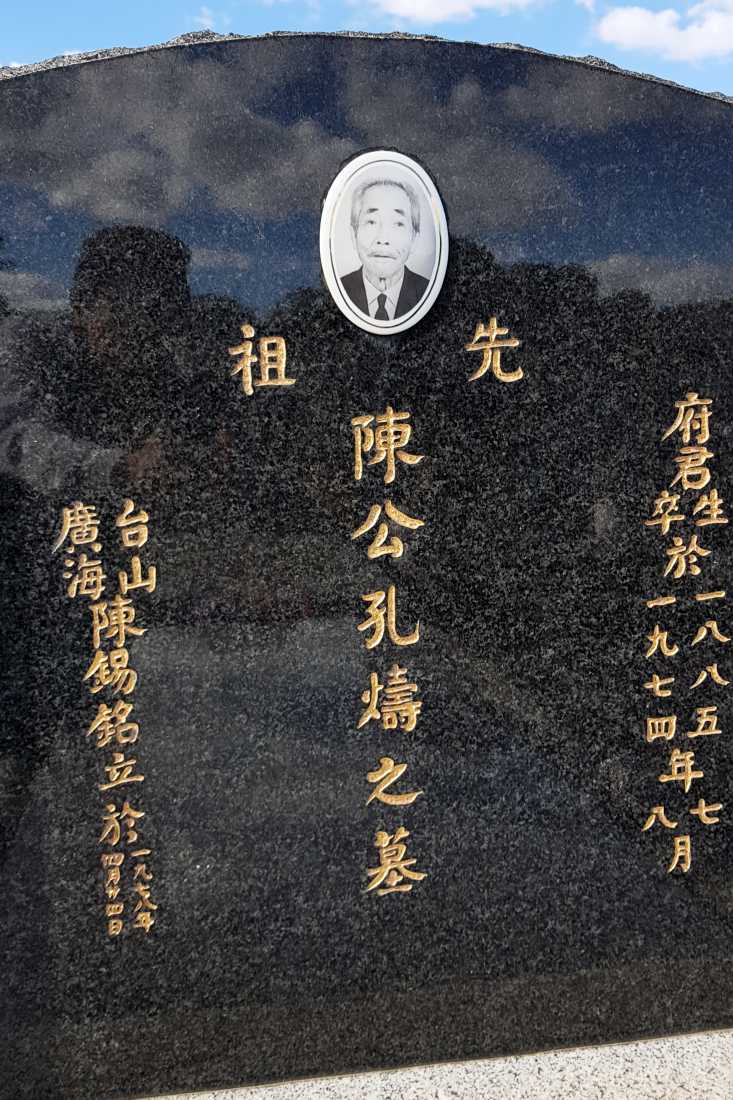 先祖
府君生卒於一八八五一九七四年七八月
陳公孔燽之墓
台山廣海陳錫銘立於一九七八年四月廿四日